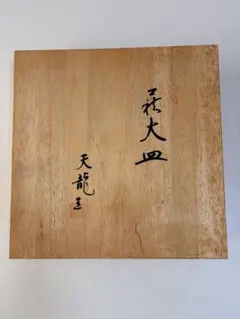 萩大皿
天龍造